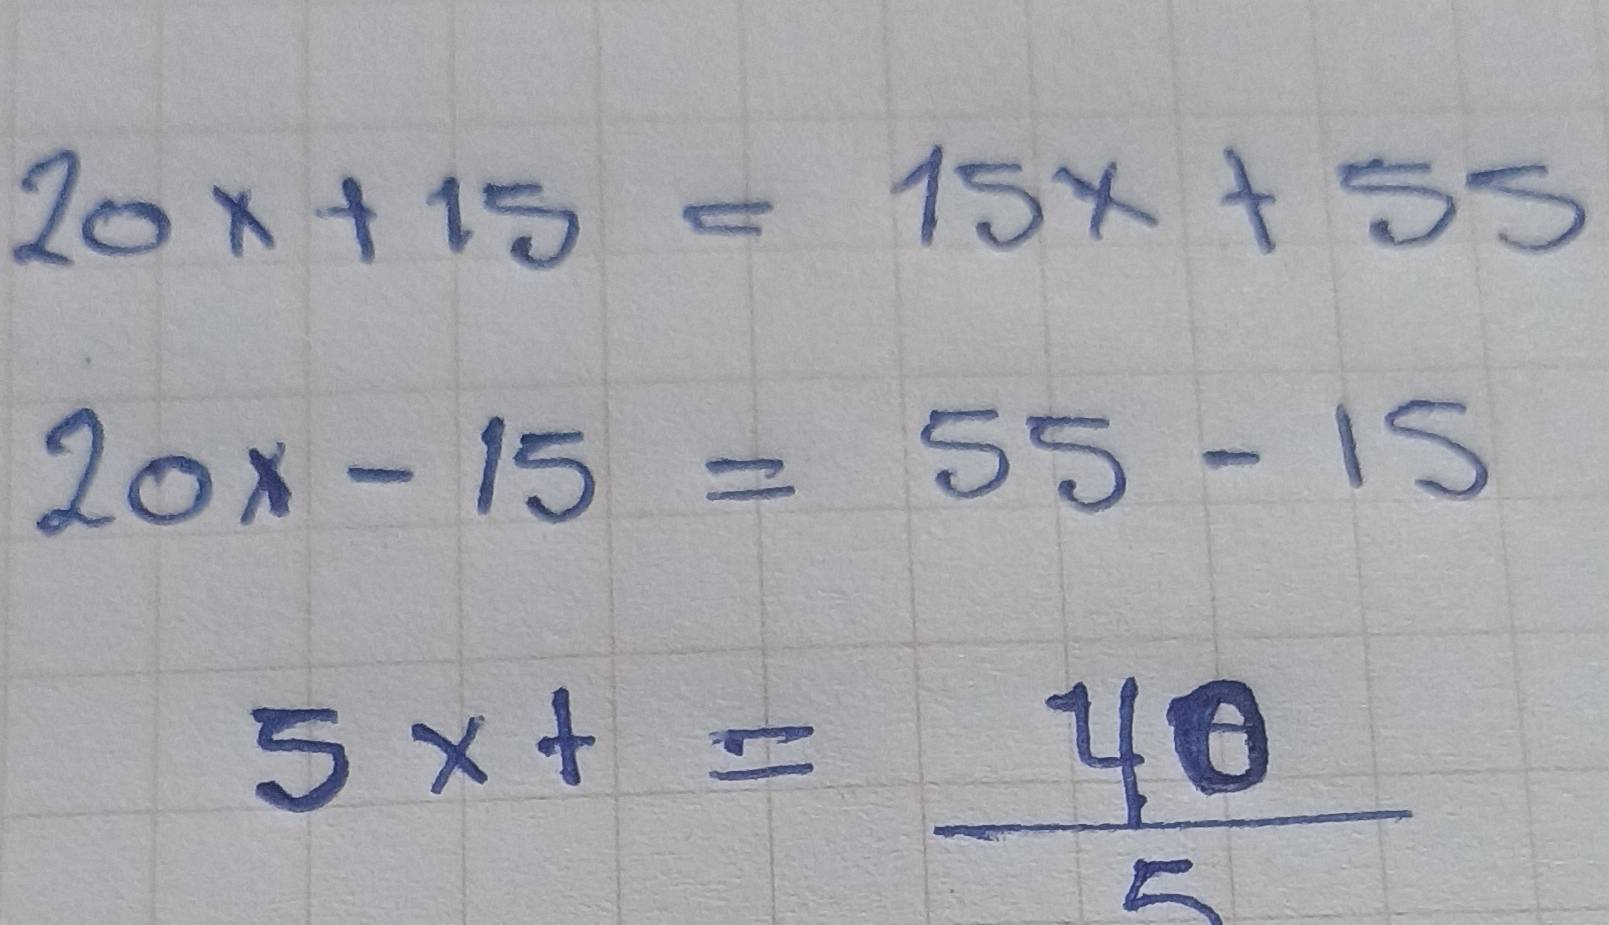 20x + 15 = 15x + 55
20x - 15 = 55 - 15
5x + = 40
5